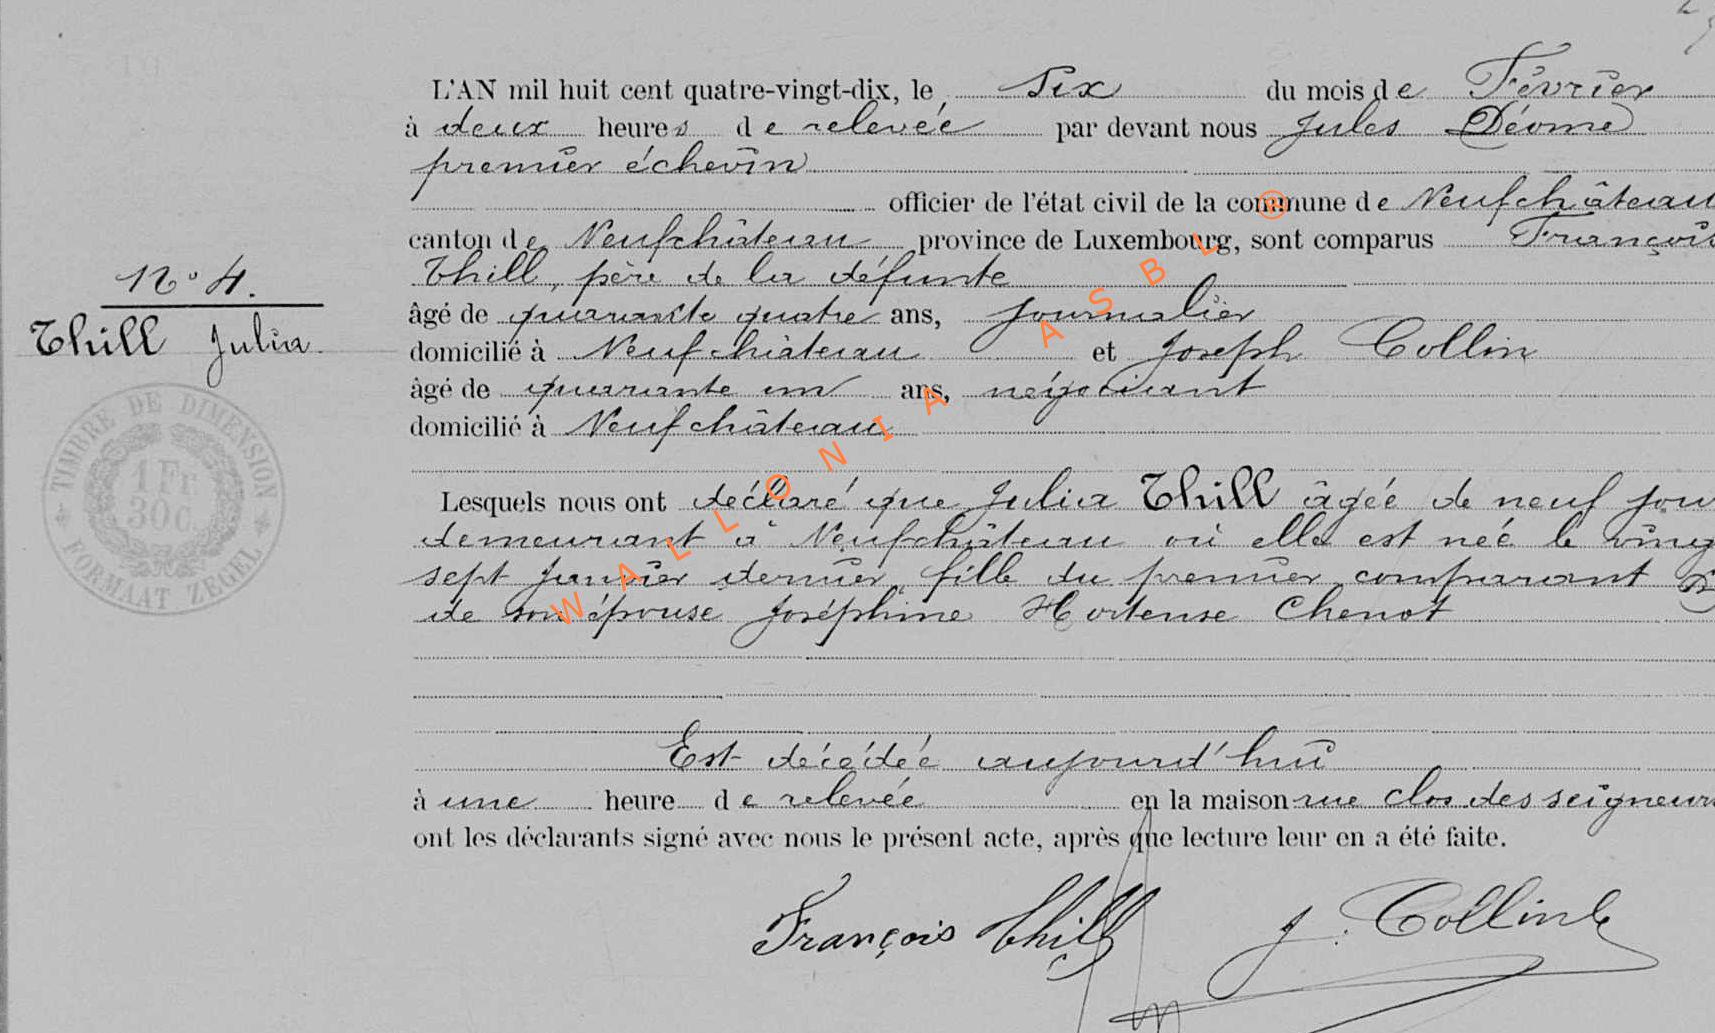 L'AN mil huit cent quatre-vingt-dix, le six du mois de Février
à deux heures de relevée par devant nous Jules Déome
premier échevin
officier de l'état civil de la commune de Neufchâteau
canton de Neufchâteau province de Luxembourg, sont comparus François
Thill, père de la défunte
âgé de quarante quatre ans, journalier
domicilié à Neufchâteau et Joseph Collin
âgé de quarante un ans, négociant
domicilié à Neufchâteau
N° 4.
Thill Julia
TIMBRE DE DIMENSION
1 Fr
30 C.
FORMAAT ZEGEL
Lesquels nous ont déclaré que Julia Thill âgée de neuf jour
demeurant à Neufchâteau où elle est née le vingt
sept Janvier dernier, fille du premier comparant &
de son épouse Joséphine Hortense Chenot
Est décédée aujourd'hui
à une heure de relevée en la maison rue clos des seigneurs
ont les déclarants signé avec nous le présent acte, après que lecture leur en a été faite.
François Thill J. Collin
WALLONIA ASBL ®